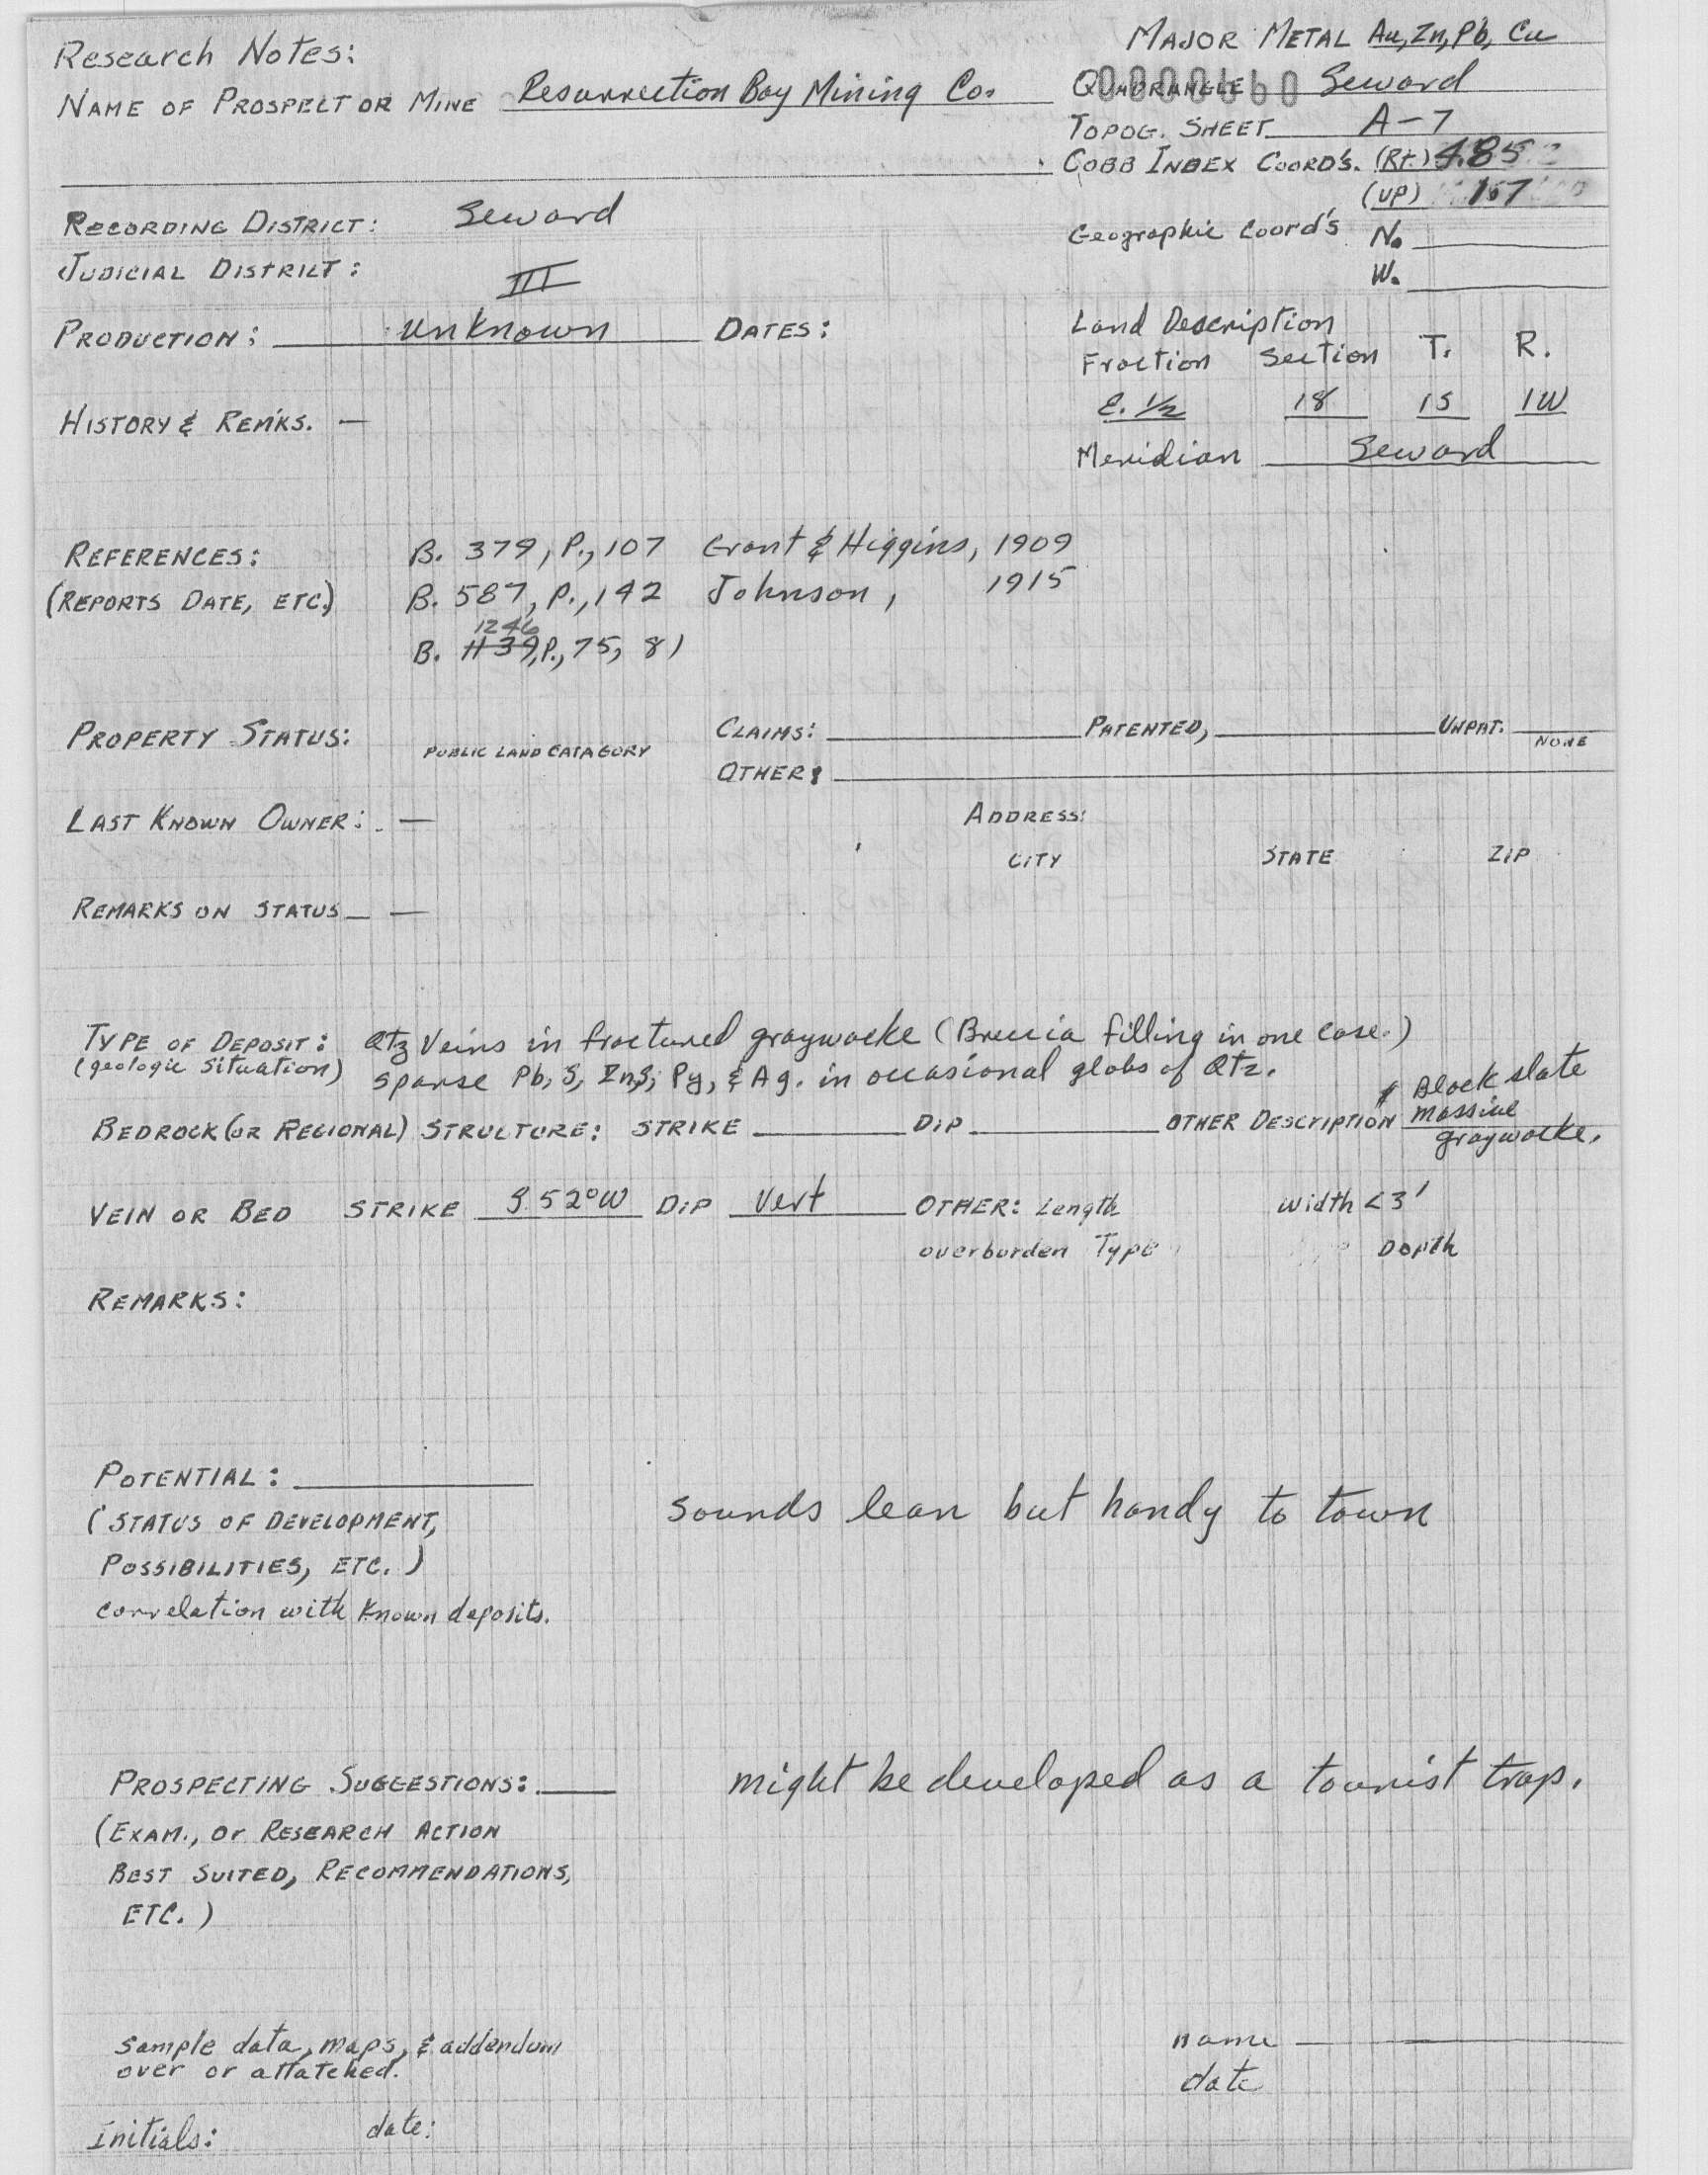 Research Notes:
MAJOR METAL Au, Zn, Pb, Cu
NAME OF PROSPECT OR MINE Resurrection Bay Mining Co.
QUADRANGLE Seward
TOPOG. SHEET A-7
COBB INDEX COORD'S. (Rt.) 4.85
(UP)
RECORDING DISTRICT: Seward
Geographic Coord's N.
W.
JUDICIAL DISTRICT: III
PRODUCTION: unknown DATES:
Land Description
Fraction Section T. R.
E. 1/2 18 1S 1W
HISTORY & REM'KS. —
Meridian Seward
REFERENCES: B. 379, P., 107 Grant & Higgins, 1909
(REPORTS DATE, ETC.) B. 587, P., 192 Johnson, 1915
1246
B. 1139, P., 75, 81
PROPERTY STATUS: PUBLIC LAND CATAGORY CLAIMS: PATENTED, UNPAT. NONE
OTHER:
LAST KNOWN OWNER: — ADDRESS:
CITY STATE ZIP
REMARKS ON STATUS — —
TYPE OF DEPOSIT: Qtz Veins in fractured graywacke (Breccia filling in one case.)
(geologic situation) sparse Pb, S, ZnS, Py, & Ag. in occasional globs of Qtz.
Black slate
BEDROCK (OR REGIONAL) STRUCTURE: STRIKE DIP OTHER DESCRIPTION massive
graywacke.
VEIN OR BED STRIKE S 52°W DIP Vert OTHER: Length width <3'
overburden Type Depth
REMARKS:
POTENTIAL:
(STATUS OF DEVELOPMENT, sounds lean but handy to town
POSSIBILITIES, ETC.)
correlation with known deposits.
PROSPECTING SUGGESTIONS: might be developed as a tourist trap.
(EXAM., or RESEARCH ACTION
BEST SUITED, RECOMMENDATIONS,
ETC.)
sample data, maps, & addendum
over or attatched.
name
date
Initials: date: